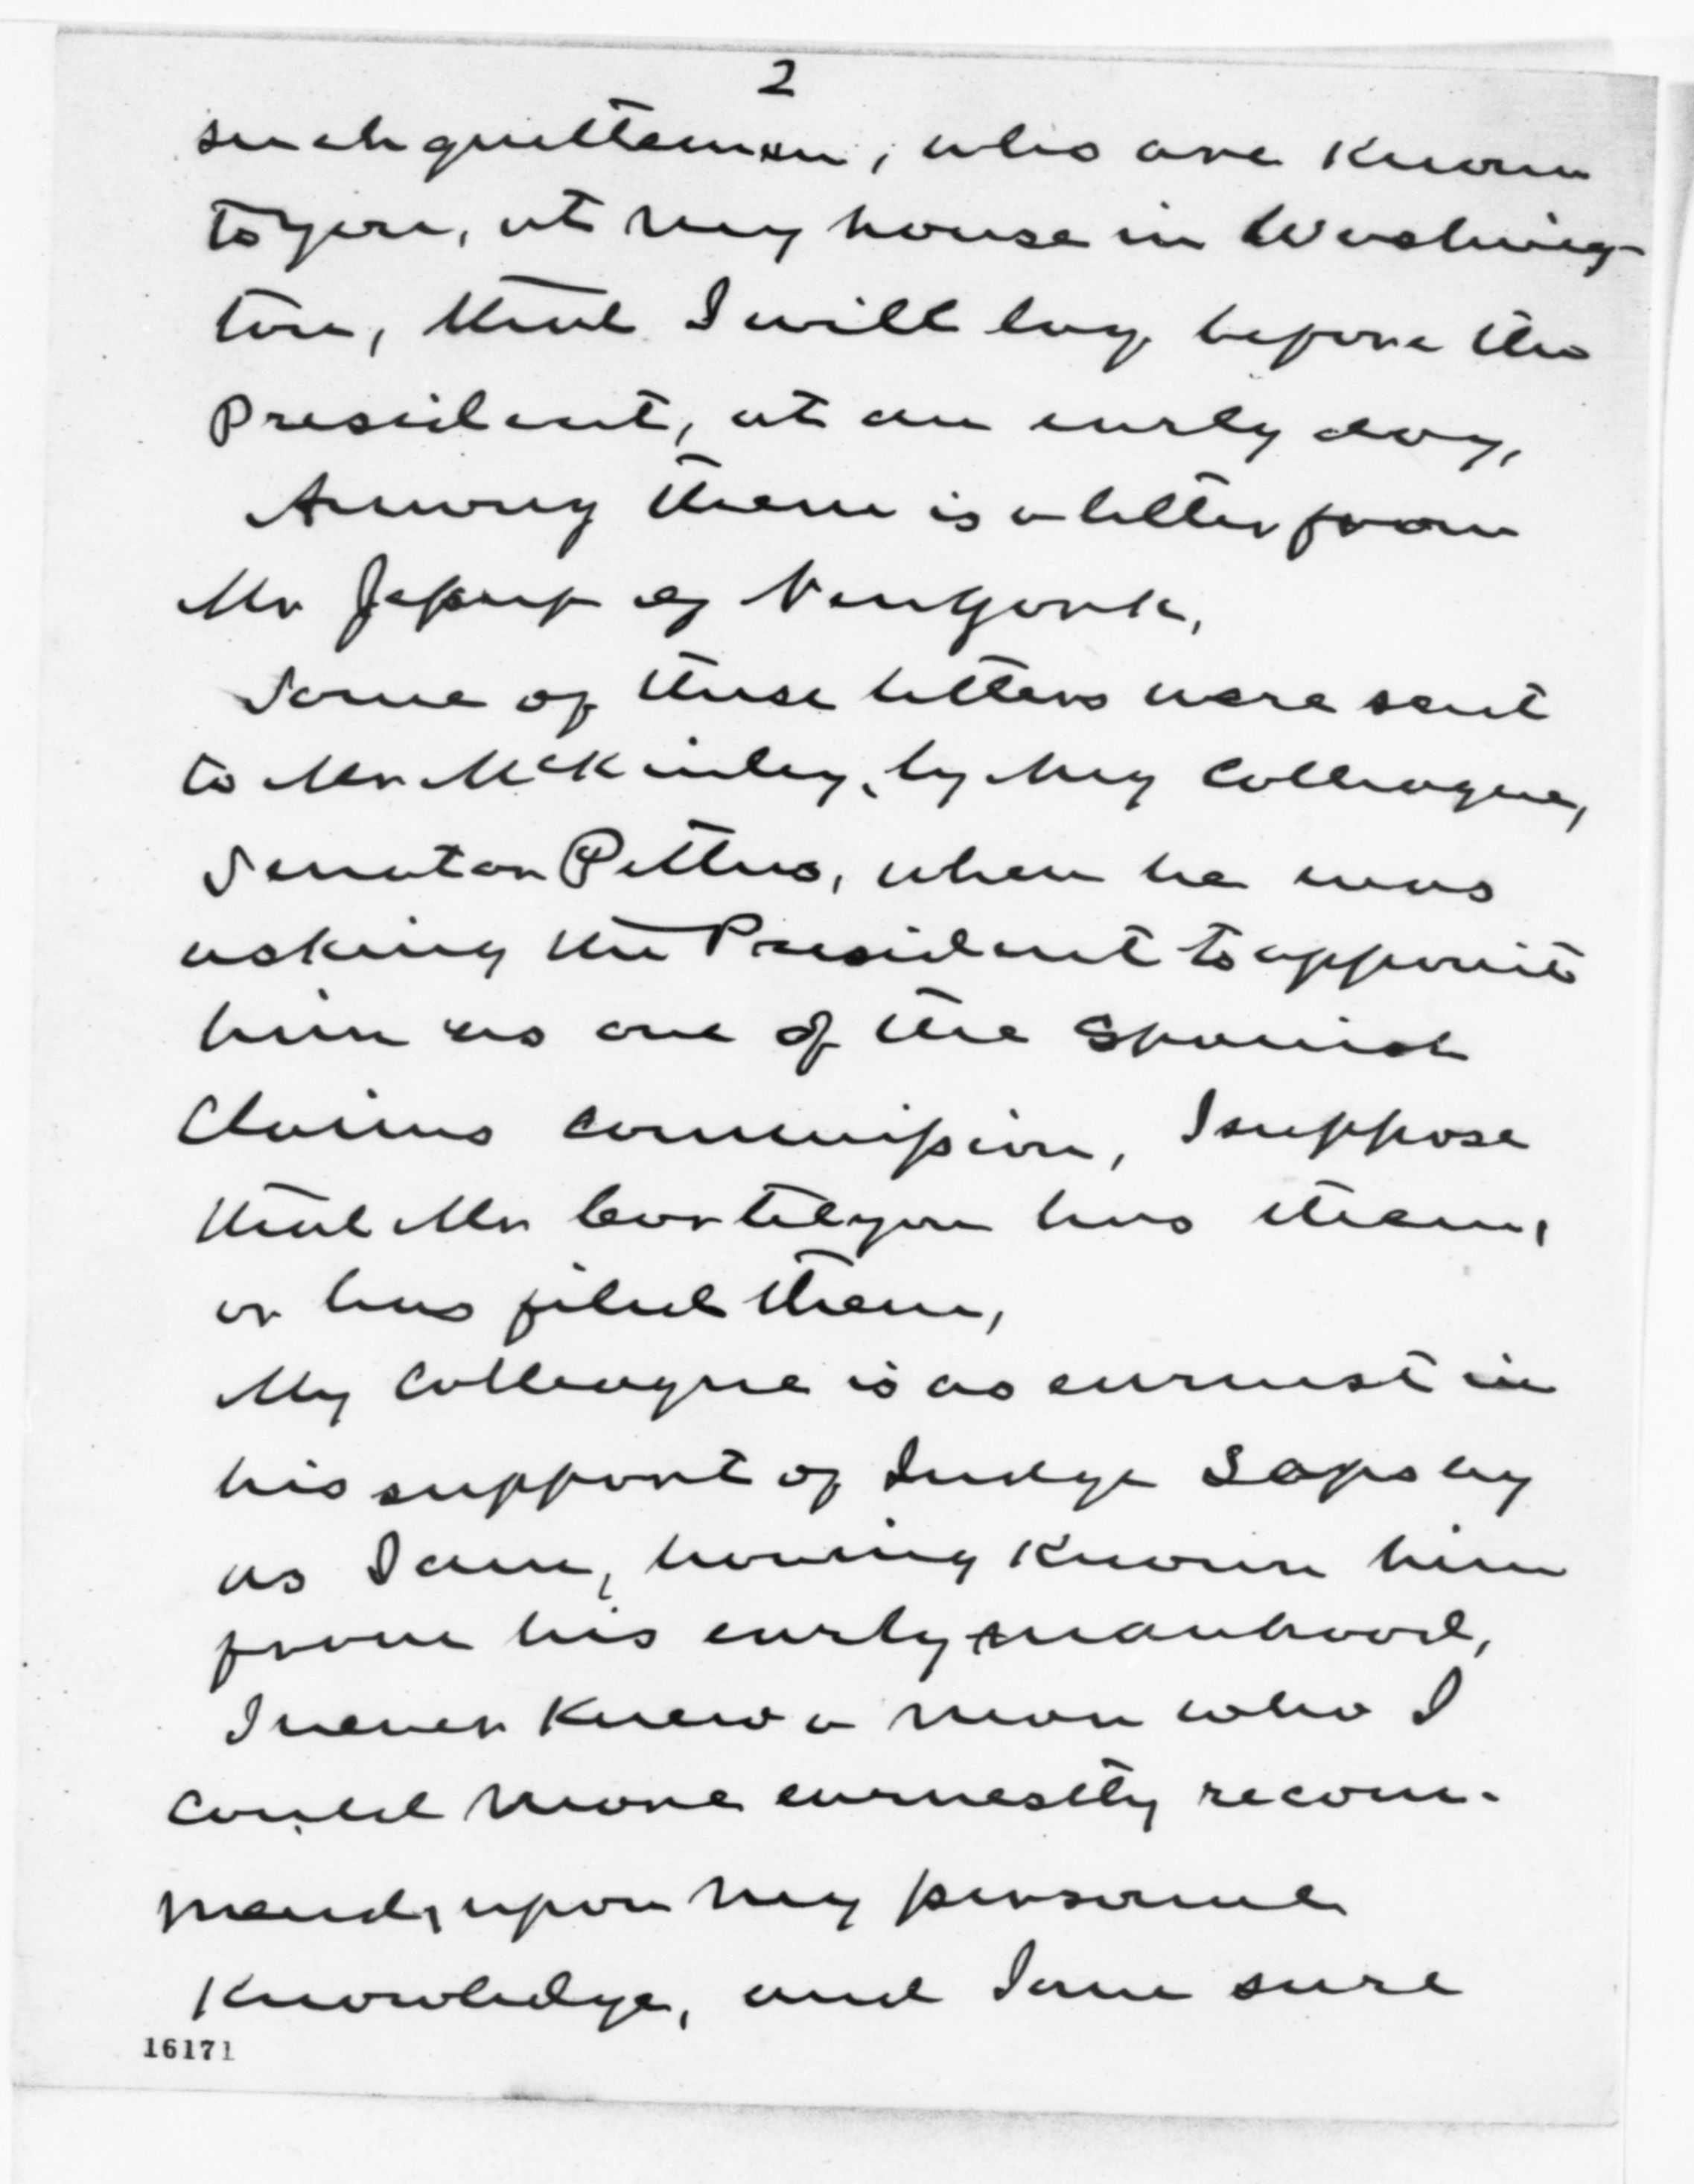 2
such gentlemen, who are known
to you, at my house in Washing-
ton, that I will lay before the
President, at an early day,
Among them is a letter from
Mr Jessup of New York,
Some of these letters were sent
to Mr McKinley, by my Colleague,
Senator Pettus, when he was
asking the President to appoint
him as one of the Spanish
Claims Commission, I suppose
that Mr Cortelyou has them,
or has filed them,
My Colleague is as earnest in
his support of Judge Lapsley
as I am, having known him
from his early manhood,
I never knew a man who I
could more earnestly recom-
mend, upon my personal
knowledge, and I am sure
16171